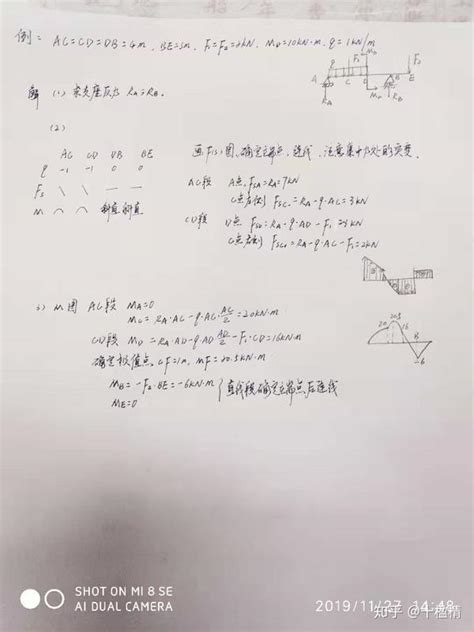 例: AC=CD=DB=4m, BE=3m, F₁=F₂=2kN, M₀=10kN·m, q=1kN/m
解 (1) 求支座反力 RA, RB.
(2)
AC CD DB BE
q -1 -1 0 0
Fs \ \ — —
M ⌒ ⌒ 斜直 斜直
画F(s)图, 确定端点, 连线, 注意集中力处的突变.
AC段 A点 FsA=RA=7kN
C点左侧 FsC=RA-q·AC=3kN
CD段 D点 FsD=RA-q·AD-F₁=-3kN
C点右侧 FsC=RA-q·AC-F₁=2kN
3) M图 AC段 MA=0
MC=RA·AC-q·AC·AC/2=20kN·m
CD段 MD=RA·AD-q·AD·AD/2-F₁·CD=16kN·m
确定极值点, MF=20.5kN·m
MB=-F₂·BE=-6kN·m
ME=0
直线段, 确定端点后连线
20 20.5 16
B
-6
SHOT ON MI 8 SE
AI DUAL CAMERA
2019/11/27 14:48
知乎